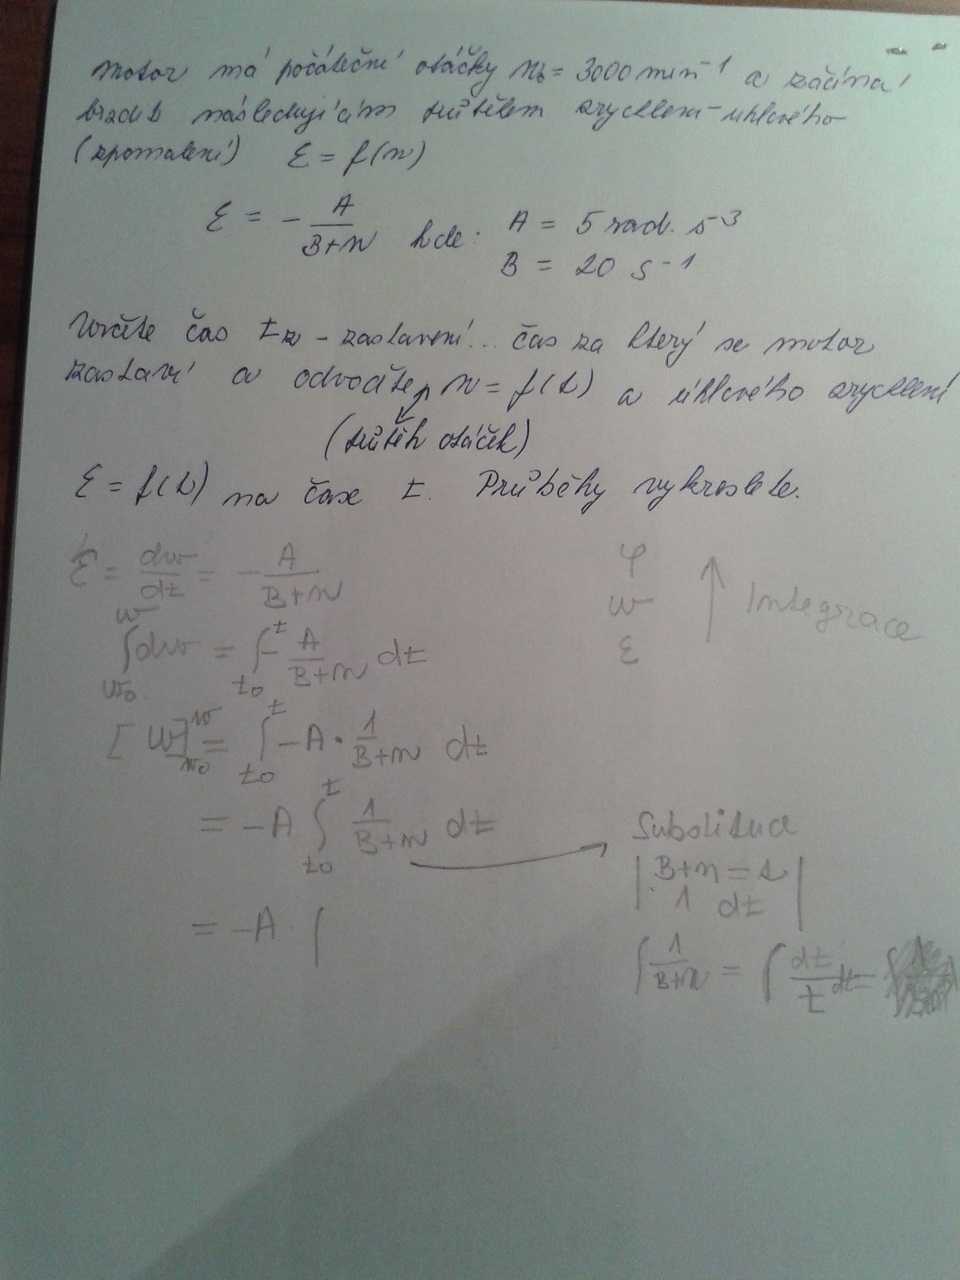 Motor má počáteční otáčky n₀ = 3000 min⁻¹ a začíná
brzdit následujícím průběhem zrychlení - úhlového
(zpomalení) ε = f(n)
ε = - A/(B+n) kde: A = 5 rad. s⁻³
B = 20 s⁻¹
Určete čas tz - zastavení... čas za který se motor
zastaví a odvoďte n = f(t) a úhlového zrychlení
(průběh otáček)
ε = f(t) na čase t. Průběhy vykreslete.
ε = dω/dt = - A/(B+n)
φ
ω
ε
Integrace
∫_{ω₀}^{ω} dω = ∫_{t₀}^{t} - A/(B+n) dt
[ω]_{ω₀}^{ω} = ∫_{t₀}^{t} -A · 1/(B+n) dt
= -A ∫_{t₀}^{t} 1/(B+n) dt
Substituce
| B+n = s |
| 1 dt |
= -A · ∫
∫ 1/(B+n) = ∫ dt/t dt =